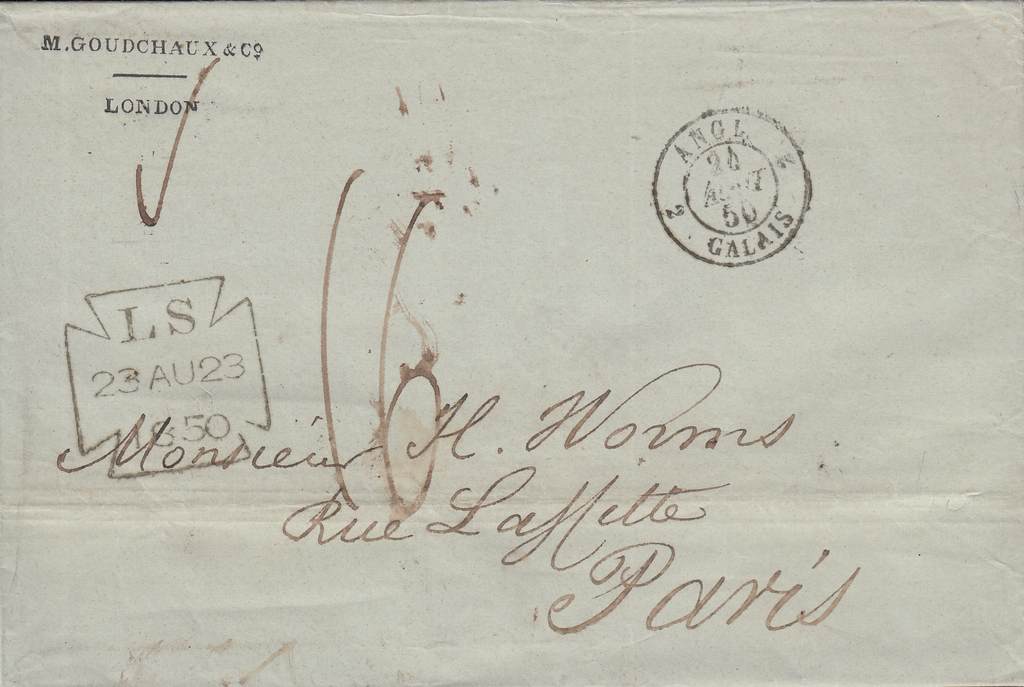 M. GOUDCHAUX & Cº
LONDON
ANGL. 2
24
AOUT
50
2 CALAIS
LS
23 AU 23
1850
16
Monsieur H. Worms
Rue Laffitte
Paris